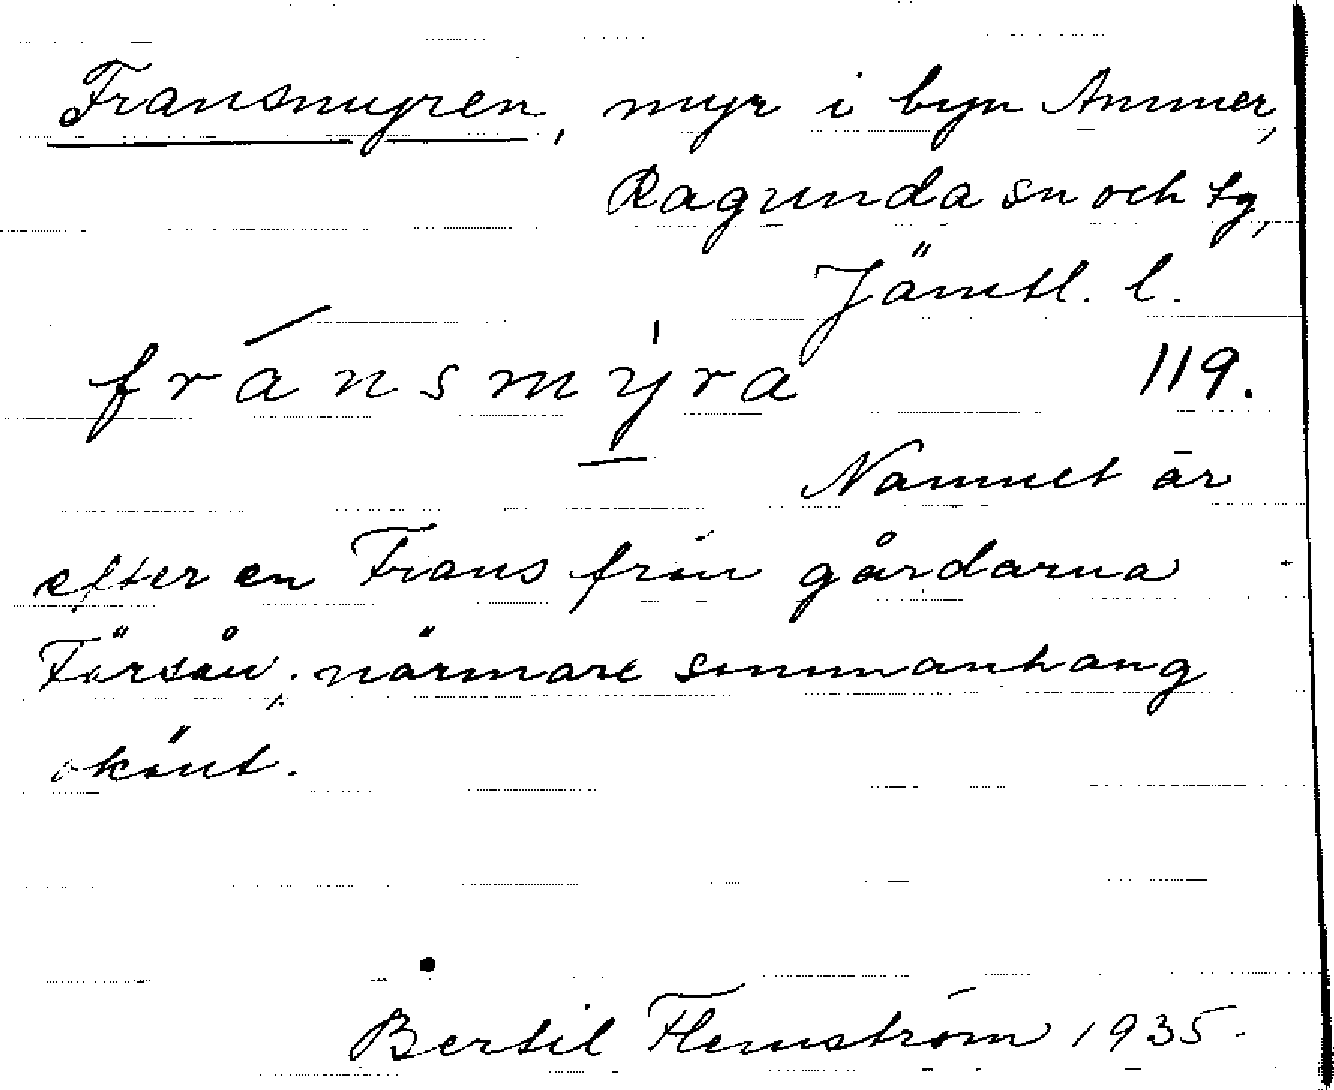 Fransmyren, myr i byn Ammer,
Ragunda sn och tg,
Jämtl. l.
fránsmy̍ra 119.
Namnet är
efter en Frans från gårdarna
Försån; närmare sammanhang
okänt.
Bertil Flemström 1935.